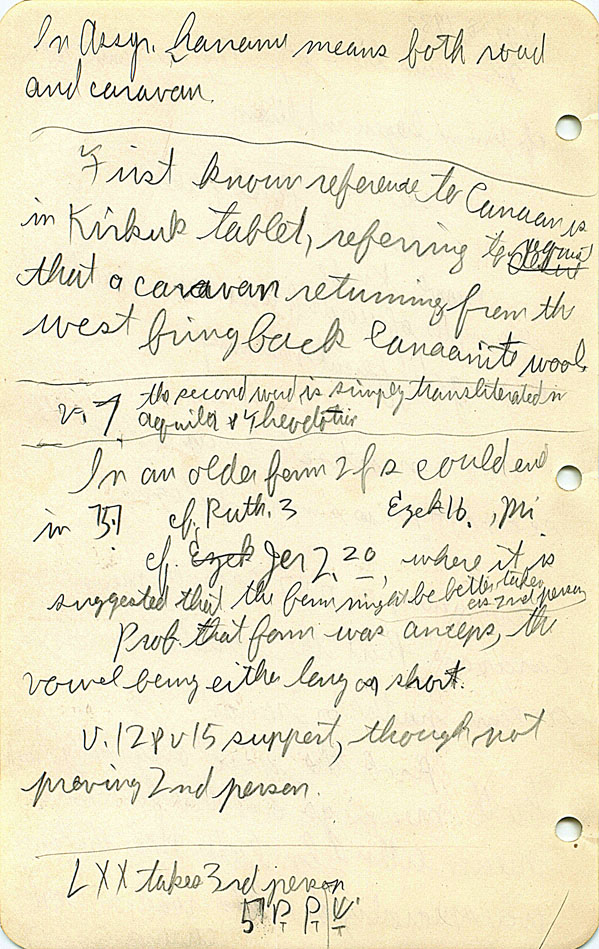 In Assyr. harranu means both road
and caravan.
First known reference to Canaan is
in Kirkuk tablet, referring to
that a caravan returning from the
west bring back Canaanite wool.
v. 7 the second word is simply transliterated in
Aquila & Theodotion
In an older form 2 f s could end
in cf. Ruth. 3 Ezek 16. , Mi
cf. Ezek Jer 2, 20, where it is
suggested that the form might be better taken
as 2nd person
Prob. that form was anceps, the
vowel being either long or short.
v. 12 & v 15 support, though not
proving 2nd person.
LXX takes 3rd person